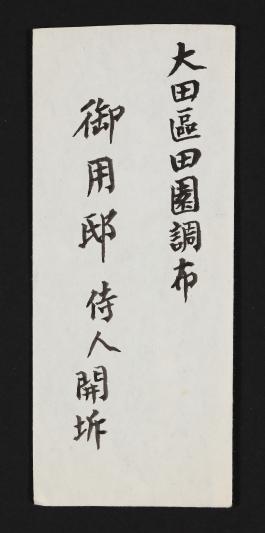 大田區田園調布
御用邸 侍人開坼